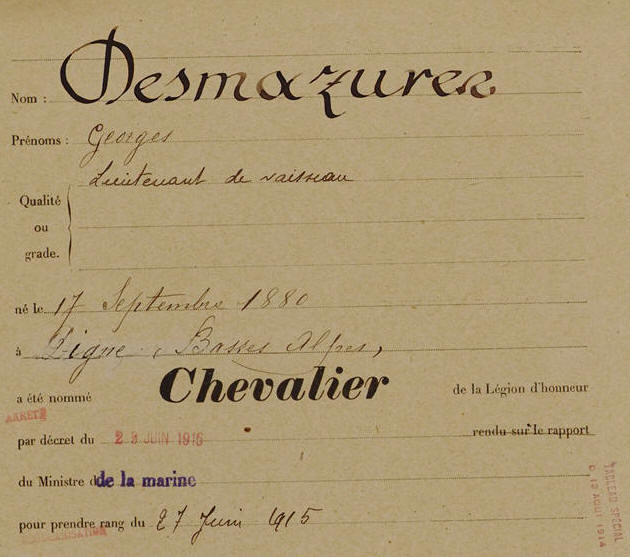 Nom : Desmazures
Prénoms : Georges
Lieutenant de vaisseau
Qualité
ou
grade.
né le 17 Septembre 1880
à Digne, Basses Alpes,
a été nommé Chevalier de la Légion d'honneur
ARRÊTÉ
par décret du 23 JUIN 1916 rendu sur le rapport
du Ministre de la marine
pour prendre rang du 27 Juin 1915
TABLEAU SPECIAL
D. 13 AOUT 1914